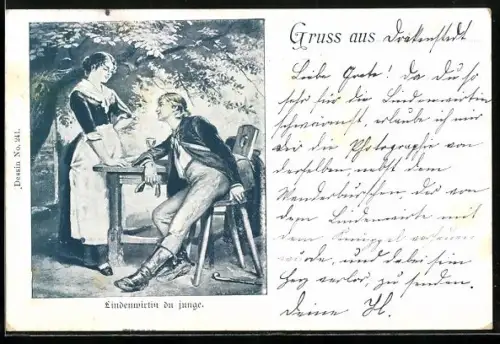 Gruss aus Drakenstedt
Liebe Grete! Da du so
sehr für die Lindenwirtin
schwärmst, erlaube ich mir
dir die Photographie von
derselben, nebst dem
Wanderburschen, der von
dem Lindenwirte mit
dem Knüppel
wurde, und dabei sein
Herz verlor, zu senden.
Deine H.
Dessin No. 241.
Lindenwirtin du junge.